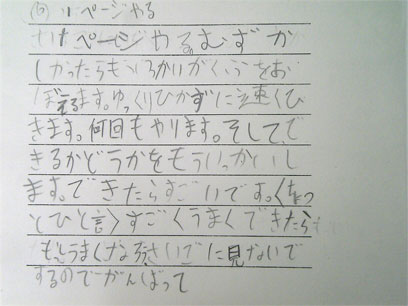 (6) 11ページやる
11ページやる。むずか
しかったらもういっかいがくふをお
ぼえます。ゆっくりひかずに速くひ
きます。何回もやります。そして、で
きるかどうかをもういっかいし
ます。できたらすごいです。くちっ
とひと言〉すごくうまくできたら
もっとうまくな さいごに見ないで
するのでがんばって